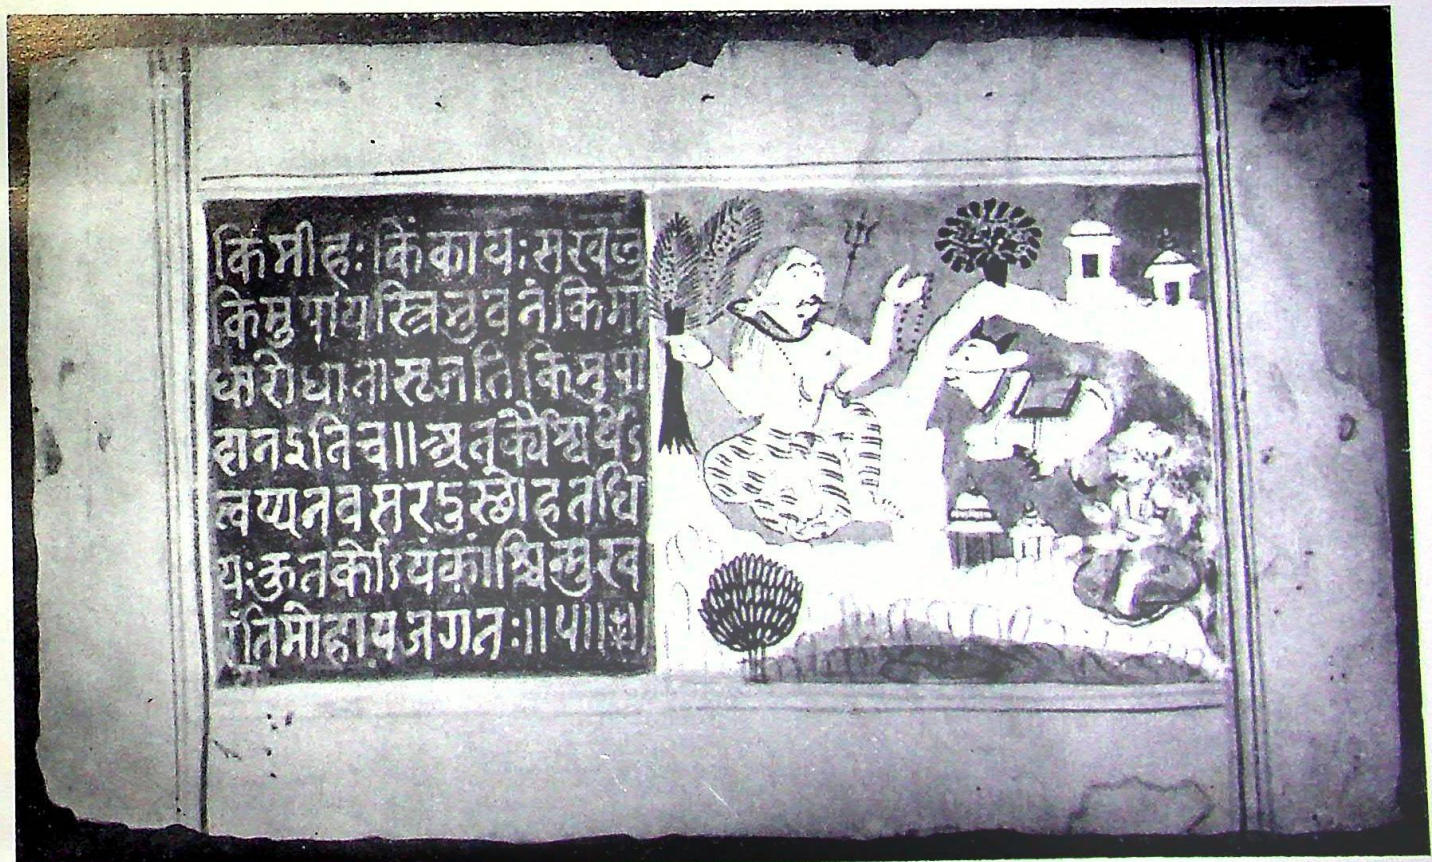 किमीहः किंकायः सखलु
किमुपायस्त्रिभुवनं किमा
धारोधातासृजति किमुपा
दानऽतिच॥ अतर्क्यैश्वर्येऽ
त्वय्यनवसरऽस्छोहतधि
यः कुतर्कोऽयकांश्चिन्मुख
तिमोहायजगतः॥५॥